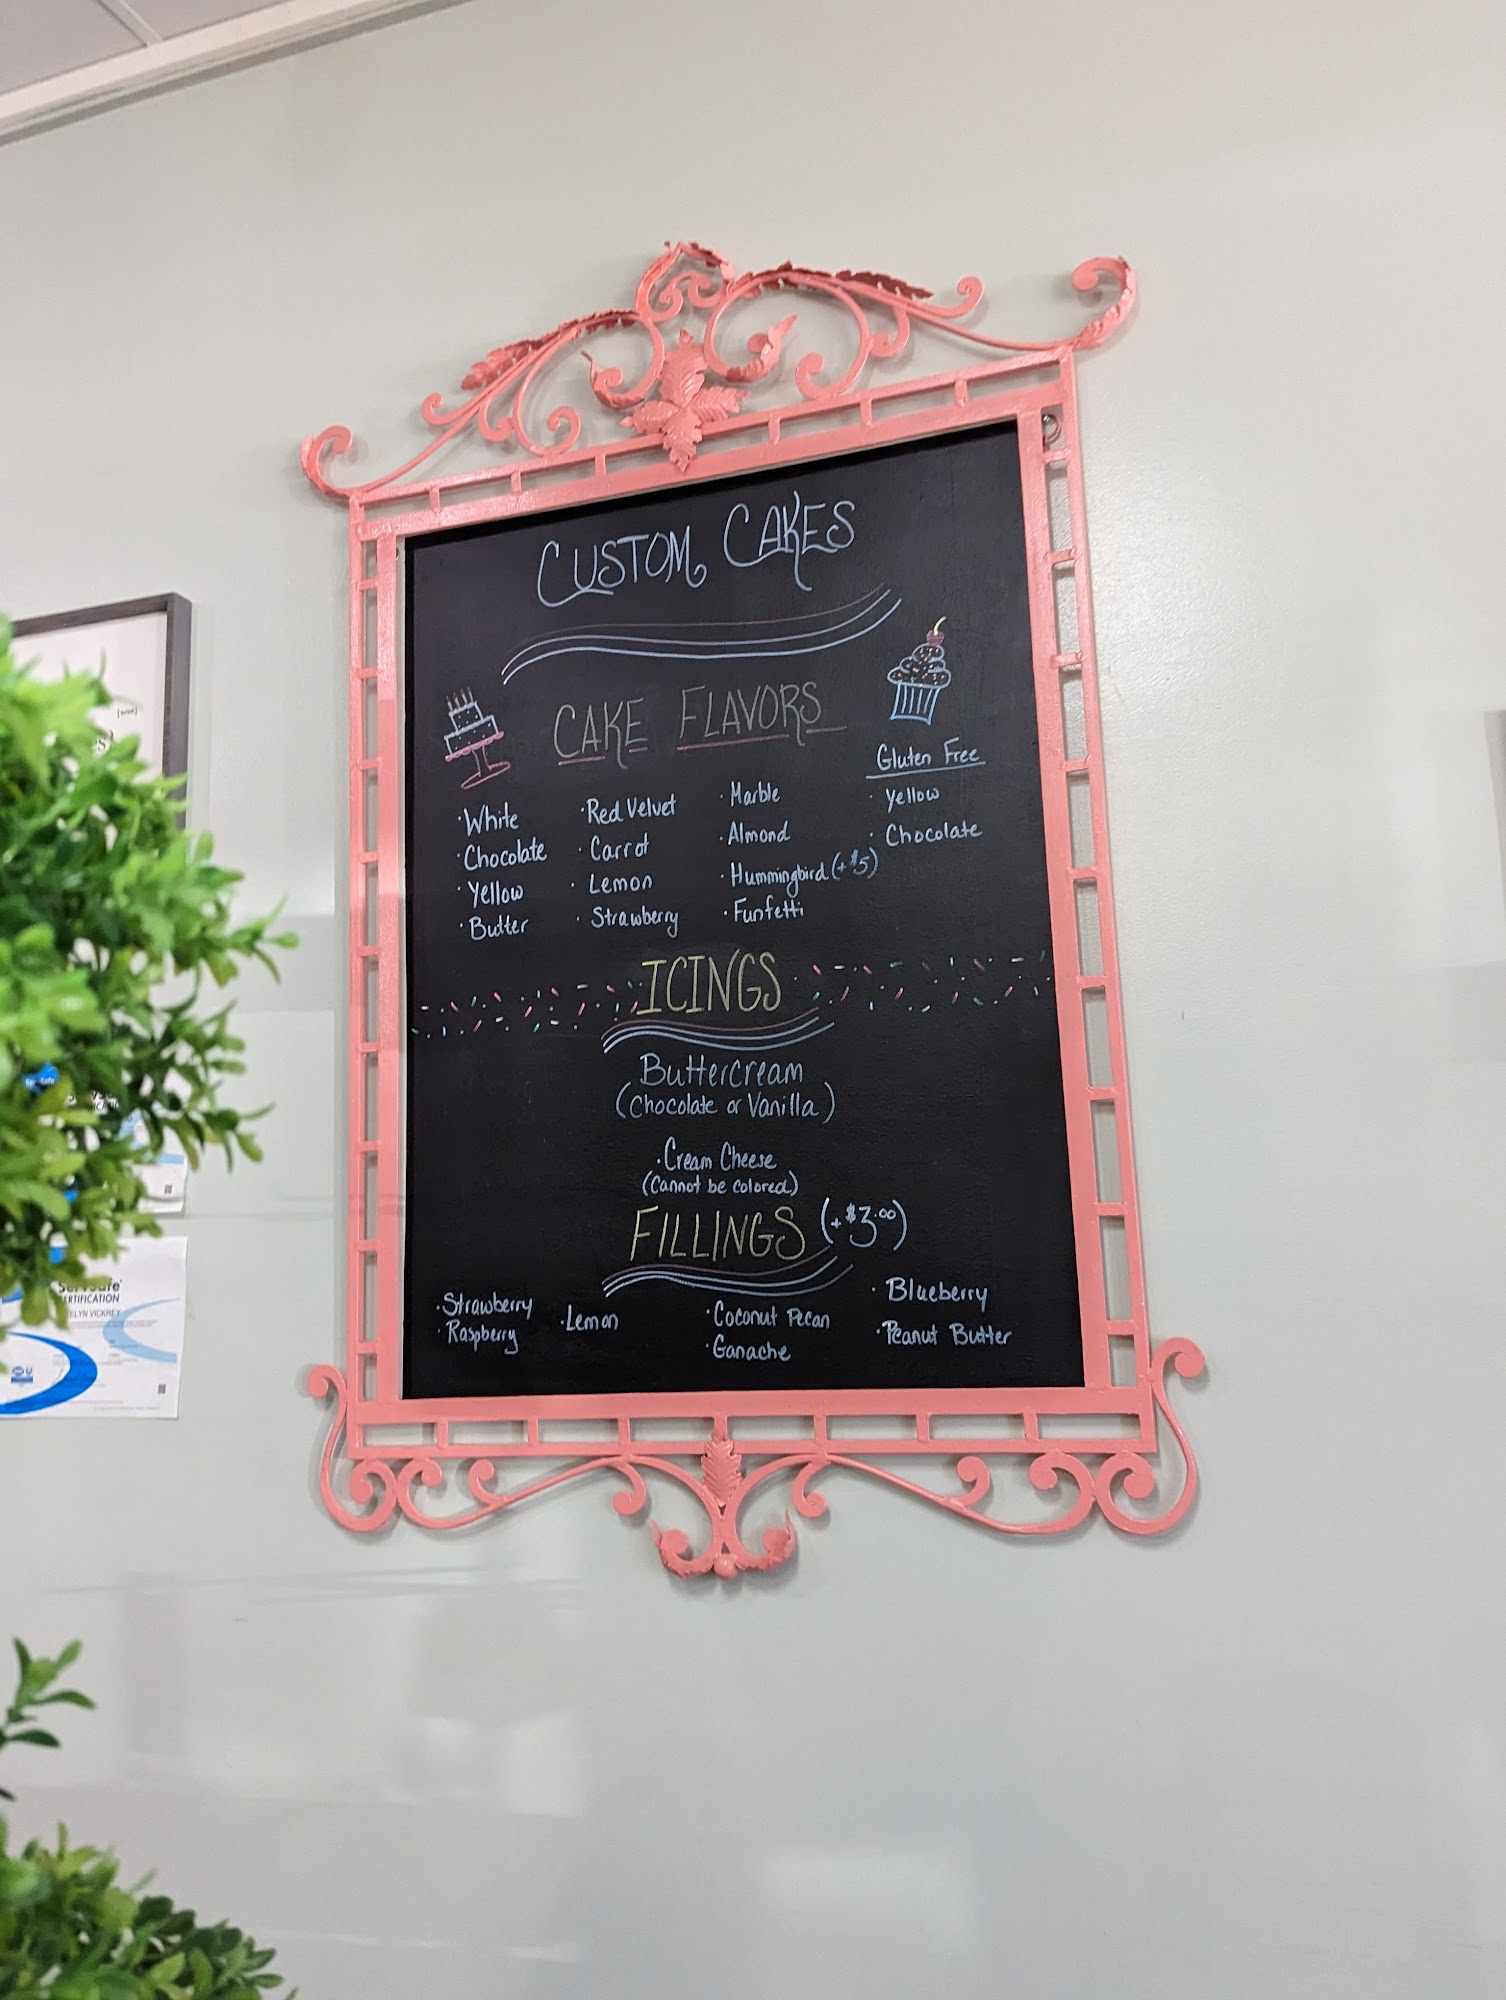 CUSTOM CAKES
CAKE FLAVORS
· White
· Chocolate
· Yellow
· Butter
· Red Velvet
· Carrot
· Lemon
· Strawberry
· Marble
· Almond
· Hummingbird (+$5)
· Funfetti
Gluten Free
· Yellow
· Chocolate
ICINGS
Buttercream
(Chocolate or Vanilla)
· Cream Cheese
(Cannot be colored)
FILLINGS (+$3.00)
· Strawberry
· Raspberry
· Lemon
· Coconut Pecan
· Ganache
· Blueberry
· Peanut Butter
ServSafe
CERTIFICATION
ELYN VICKREY